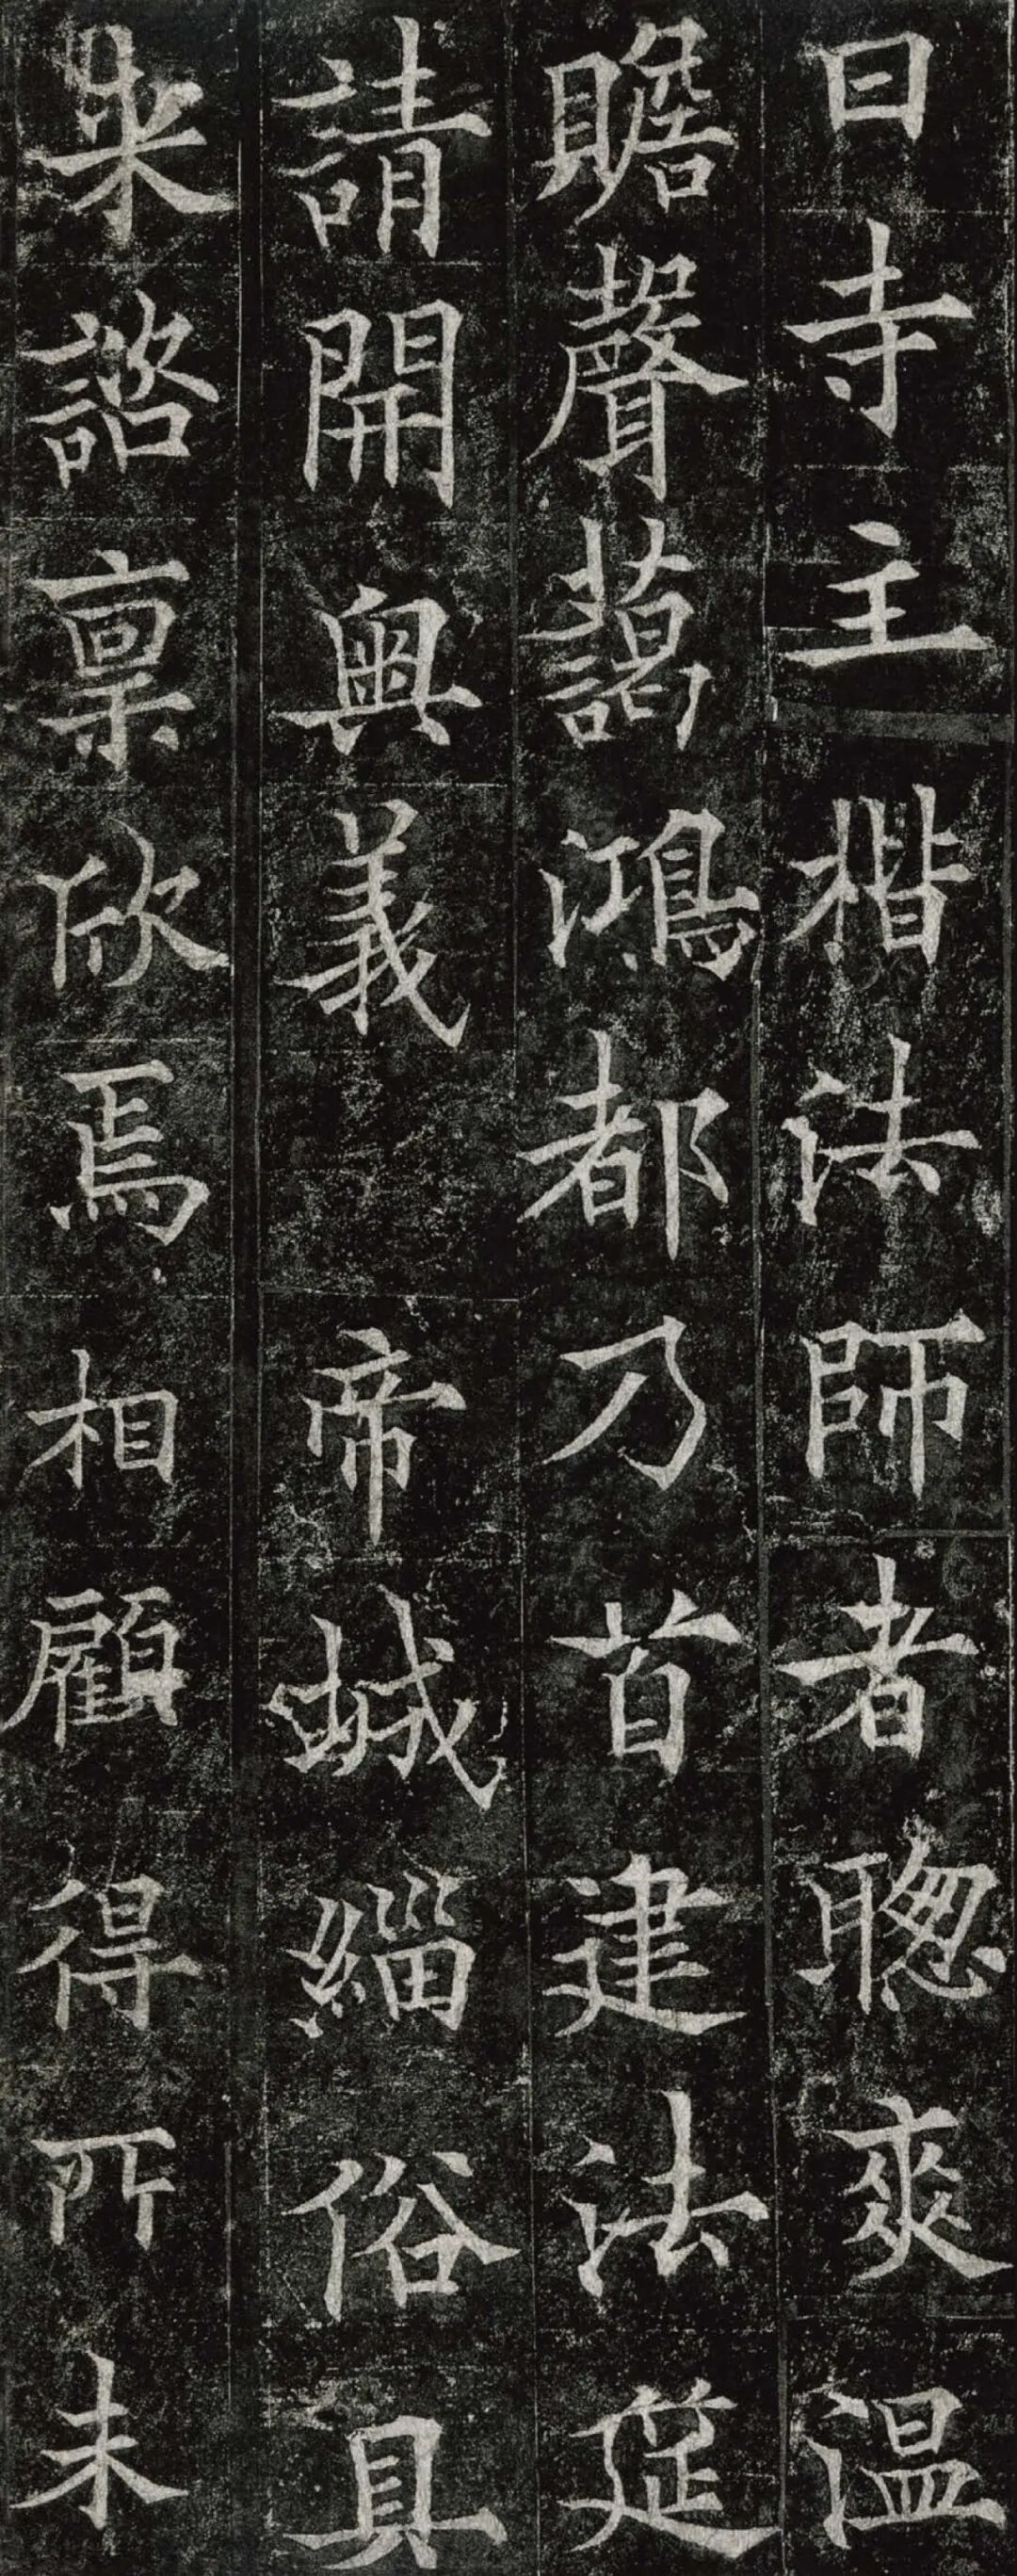 曰寺主楷法師者聰爽温
贍聲藹鴻都乃首建法筵
請開奥義　帝城緇俗具
來諮稟欣焉相顧得所未